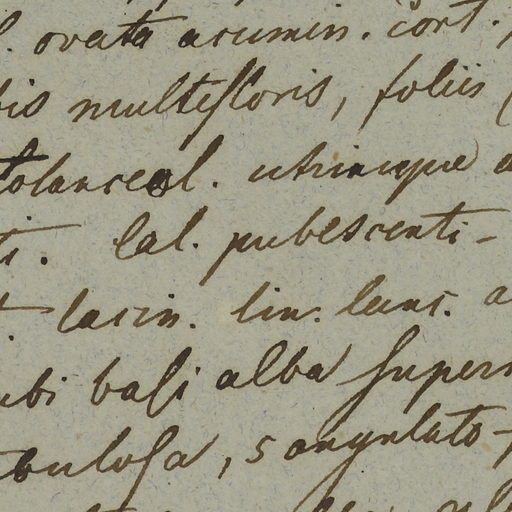 . ovata acumin. Cort.
bis multifloris, foliis
tolanceol. utrinque a
ti. Cal. pubescenti-
lacin. lin. lanc. a
ubi basi alba super
bulosa, 5 angulato-